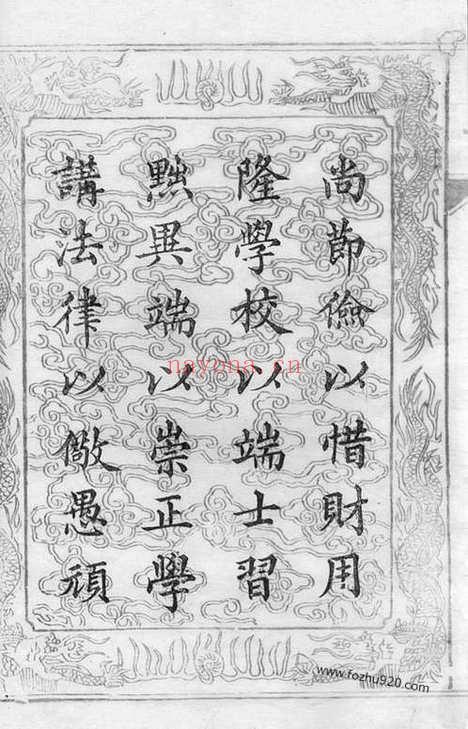 尚節儉以惜財用
隆學校以端士習
黜異端以崇正學
講法律以儆愚頑
nayona.cn
www.fozhu920.com